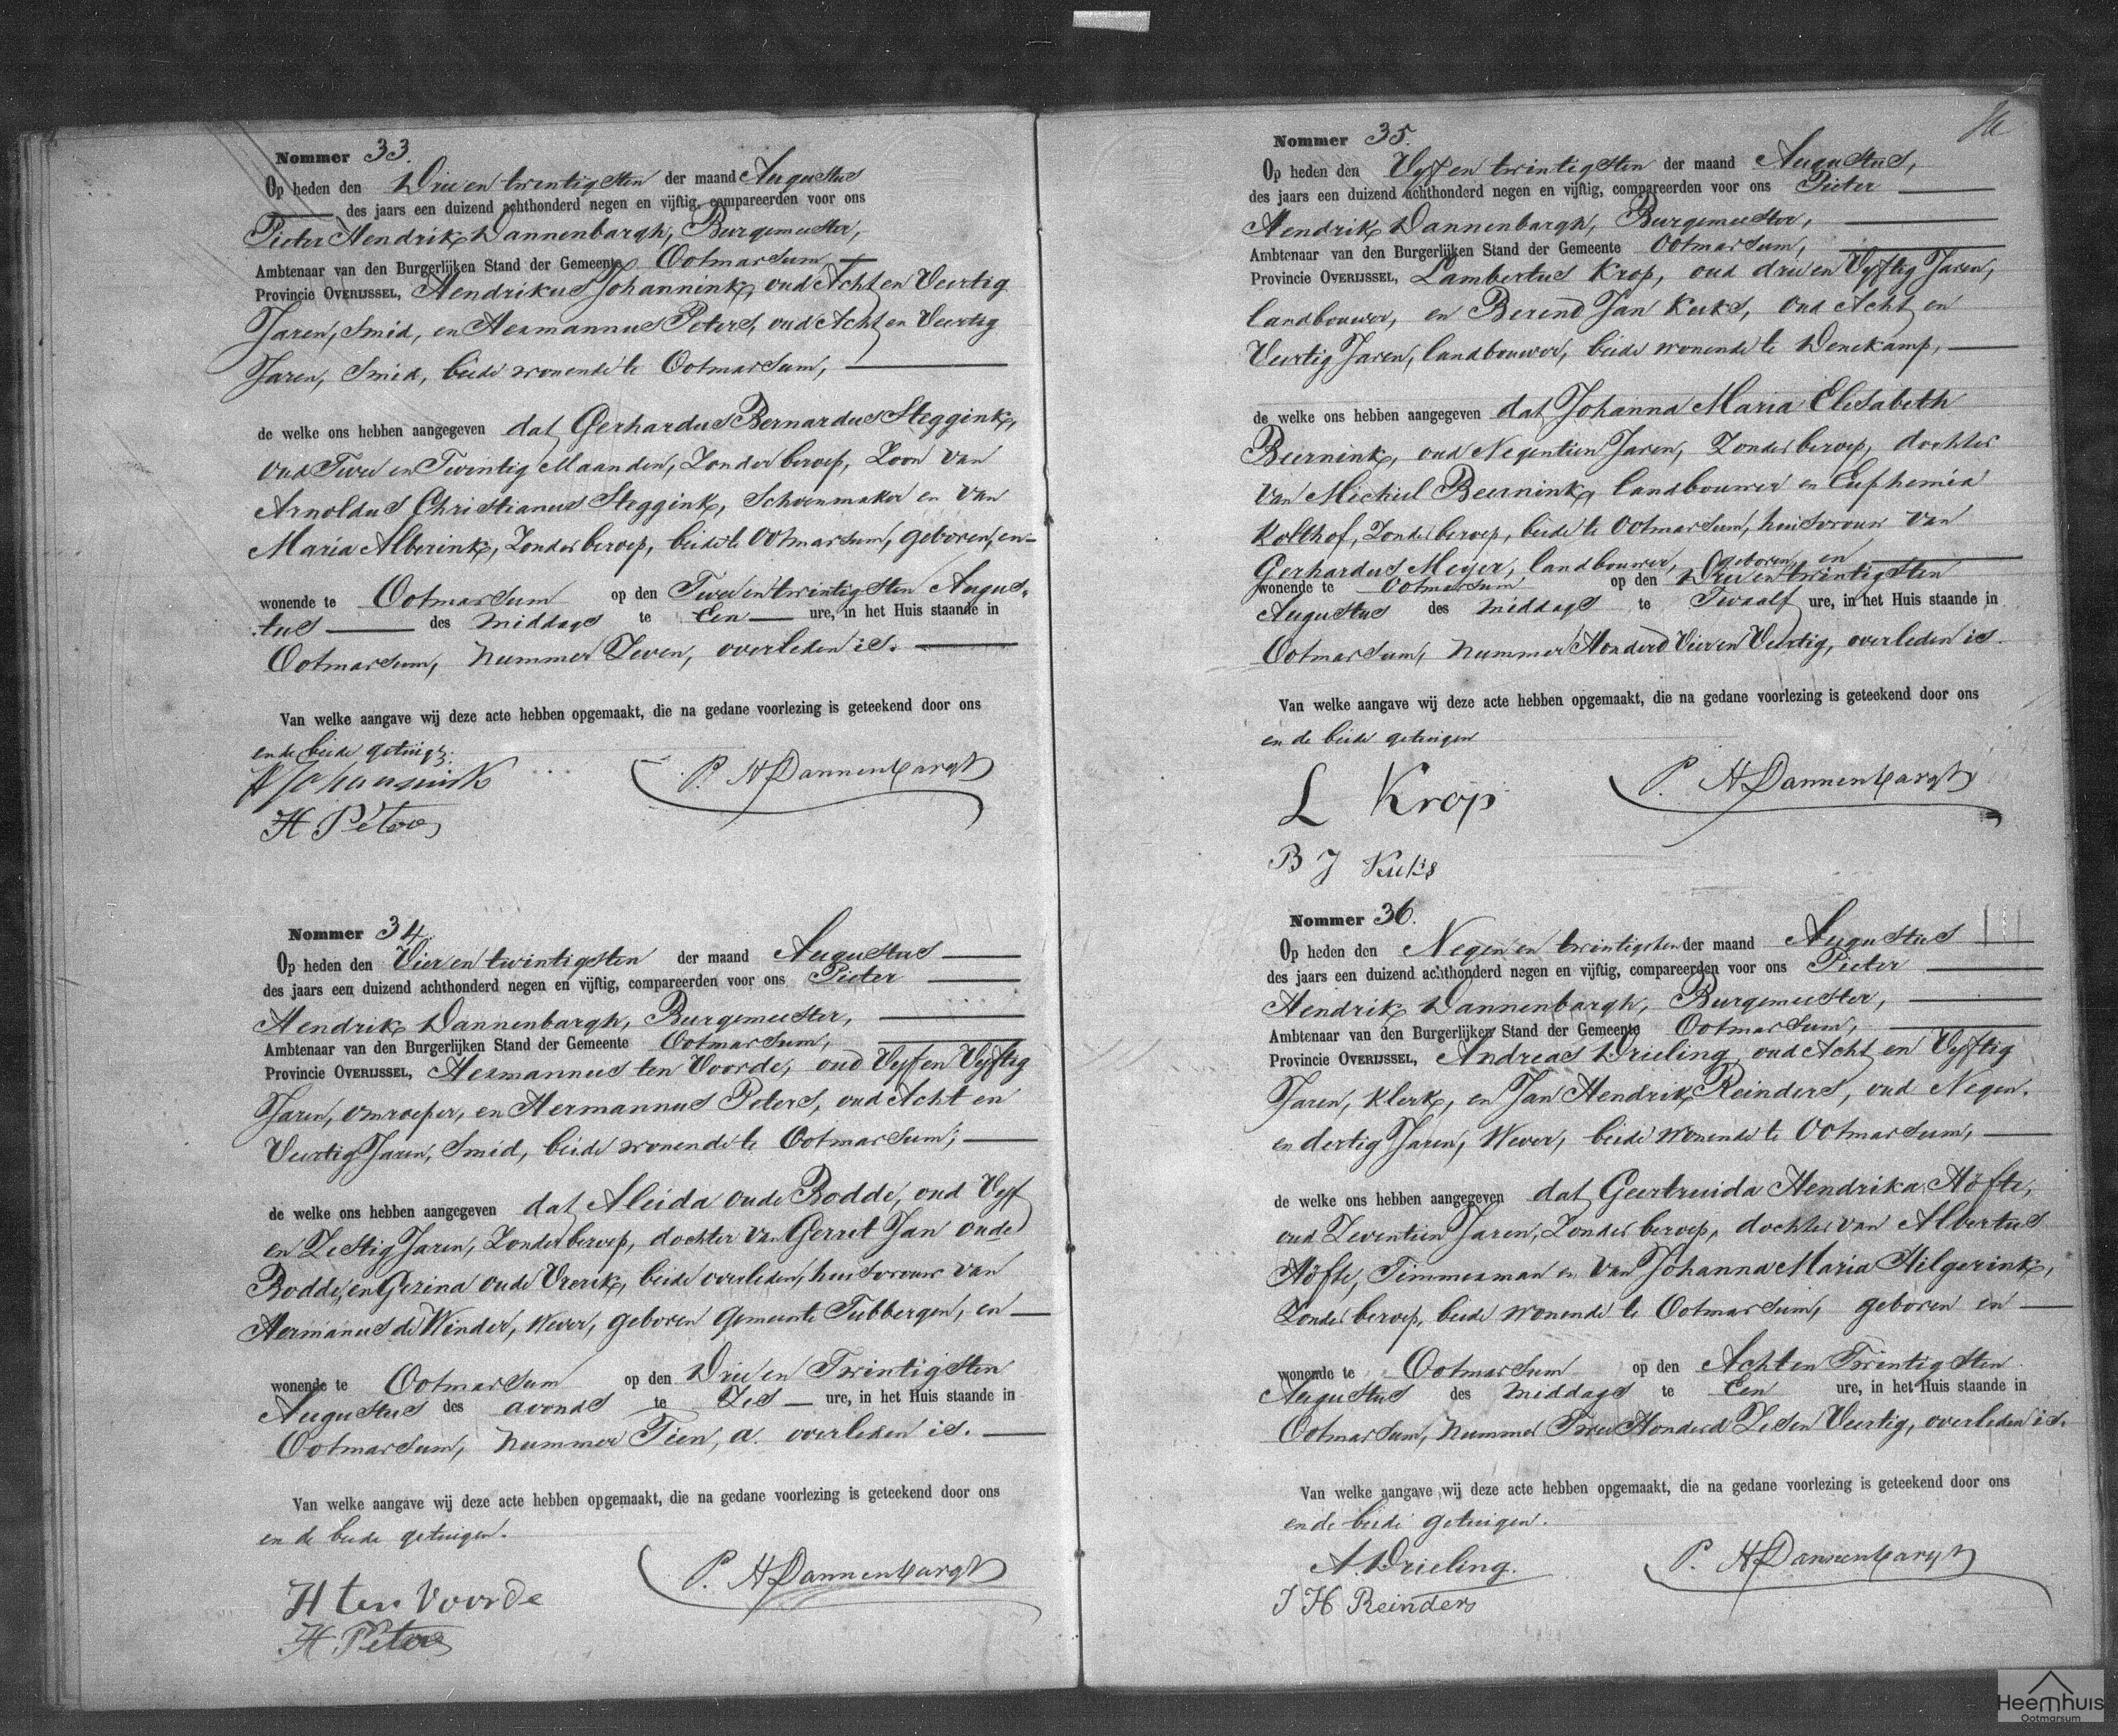 Nommer 33.
Op heden den Drie en twintigsten der maand Augustus
des jaars een duizend achthonderd negen en vijftig, compareerden voor ons
Pieter Hendrik Dannenbargh, Burgemeester,
Ambtenaar van den Burgerlijken Stand der Gemeente Ootmarsum
Provincie OVERIJSSEL, Hendrikus Johannink, oud Acht en Veertig
Jaren, Smid, en Hermannus Peters, oud Acht en Veertig
Jaren, Smid, beide wonende te Ootmarsum,
de welke ons hebben aangegeven dat Gerhardus Bernardus Steggink,
oud Twee en Twintig Maanden, Zonder beroep, Zoon van
Arnoldus Christianus Steggink, Schoenmaker en van
Maria Alberink, Zonder beroep, beide te Ootmarsum, geboren, en
wonende te Ootmarsum op den Twee en twintigsten Augus-
tus des middags te Een ure, in het Huis staande in
Ootmarsum, nummer Zeven, overleden is.
Van welke aangave wij deze acte hebben opgemaakt, die na gedane voorlezing is geteekend door ons
en de beide getuigen.
H Johannink
P. H Dannenbargh
H Peters
Nommer 34.
Op heden den Vier en twintigsten der maand Augustus
des jaars een duizend achthonderd negen en vijftig, compareerden voor ons Pieter
Hendrik Dannenbargh, Burgemeester,
Ambtenaar van den Burgerlijken Stand der Gemeente Ootmarsum,
Provincie OVERIJSSEL, Hermannus ten Voorde, oud Vyf en Vyftig
Jaren, omroeper, en Hermannus Peters, oud Acht en
Veertig Jaren, Smid, beide wonende te Ootmarsum,
de welke ons hebben aangegeven dat Aleida oude Bodde, oud Vyf
en Zestig Jaren, Zonder beroep, dochter van Gerret Jan oude
Bodde, en Gezina oude Vrerik, beide overleden, huisvrouw van
Hermanus de Winder, Wever, geboren Gemeente Tubbergen, en
wonende te Ootmarsum op den Drie en Twintigsten
Augustus des avonds te Zes ure, in het Huis staande in
Ootmarsum, nummer Tien, a. overleden is.
Van welke aangave wij deze acte hebben opgemaakt, die na gedane voorlezing is geteekend door ons
en de beide getuigen.
P. H Dannenbargh
H ten Voorde
H Peters
Nommer 35.
Op heden den Vyf en twintigsten der maand Augustus,
des jaars een duizend achthonderd negen en vijftig, compareerden voor ons Pieter
Hendrik Dannenbargh, Burgemeester,
Ambtenaar van den Burgerlijken Stand der Gemeente Ootmarsum,
Provincie OVERIJSSEL, Lambertus Krop, oud drie en Vyftig Jaren,
landbouwer, en Berend Jan Kuks, oud Acht en
Veertig Jaren, landbouwer, beide wonende te Denekamp,
de welke ons hebben aangegeven dat Johanna Maria Elisabeth
Beernink, oud Negentien Jaren, Zonder beroep, dochter
van Michiel Beernink, landbouwer en Euphemia
Kolthof, Zonder beroep, beide te Ootmarsum, huisvrouw van
Gerhardus Meyer, landbouwer, geboren en
wonende te Ootmarsum op den Drie en twintigsten
Augustus des middags te Twaalf ure, in het Huis staande in
Ootmarsum, nummer Honderd Vier en Veertig, overleden is.
Van welke aangave wij deze acte hebben opgemaakt, die na gedane voorlezing is geteekend door ons
en de beide getuigen
L Krop
P. H Dannenbargh
B J Kuks
Nommer 36.
Op heden den Negen en twintigsten der maand Augustus
des jaars een duizend achthonderd negen en vijftig, compareerden voor ons Pieter
Hendrik Dannenbargh, Burgemeester,
Ambtenaar van den Burgerlijken Stand der Gemeente Ootmarsum,
Provincie OVERIJSSEL, Andreas Drieling, oud Acht en Vyftig
Jaren, Klerk, en Jan Hendrik Reinders, oud Negen-
en dertig Jaren, Wever, beide wonende te Ootmarsum,
de welke ons hebben aangegeven dat Geertruida Hendrika Höfte,
oud Zeventien Jaren, Zonder beroep, dochter van Albertus
Höfte, Timmerman en van Johanna Maria Hilgerink,
Zonder beroep, beide wonende te Ootmarsum, geboren en
wonende te Ootmarsum op den Acht en Twintigsten
Augustus des middags te Een ure, in het Huis staande in
Ootmarsum, nummer Twee Honderd Zes en Veertig, overleden is.
Van welke aangave wij deze acte hebben opgemaakt, die na gedane voorlezing is geteekend door ons
en de beide getuigen.
A. Drieling.
P. H Dannenbargh
J H Reinders
Heemhuis
Ootmarsum